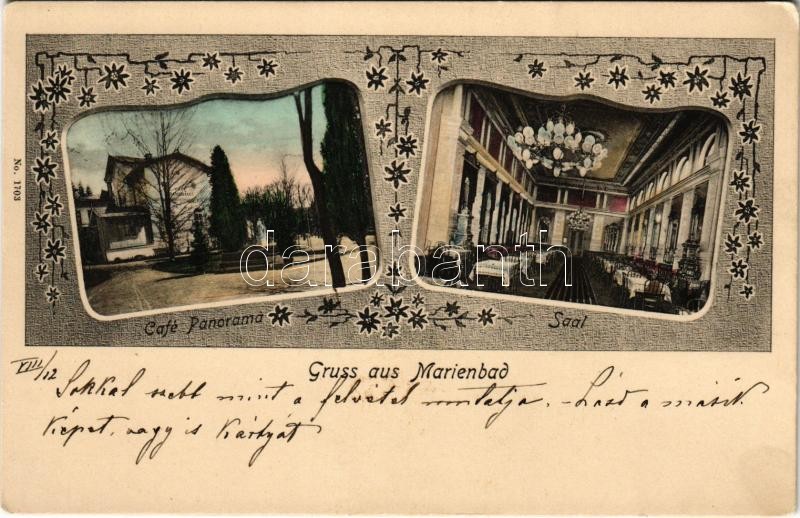 No. 1703
darabanth
Café Panorama
Saal
Gruss aus Marienbad
VIII/12
Sokkal szebb mint a felvétel mutatja. - Lásd a másik
képet, vagy is kártyát